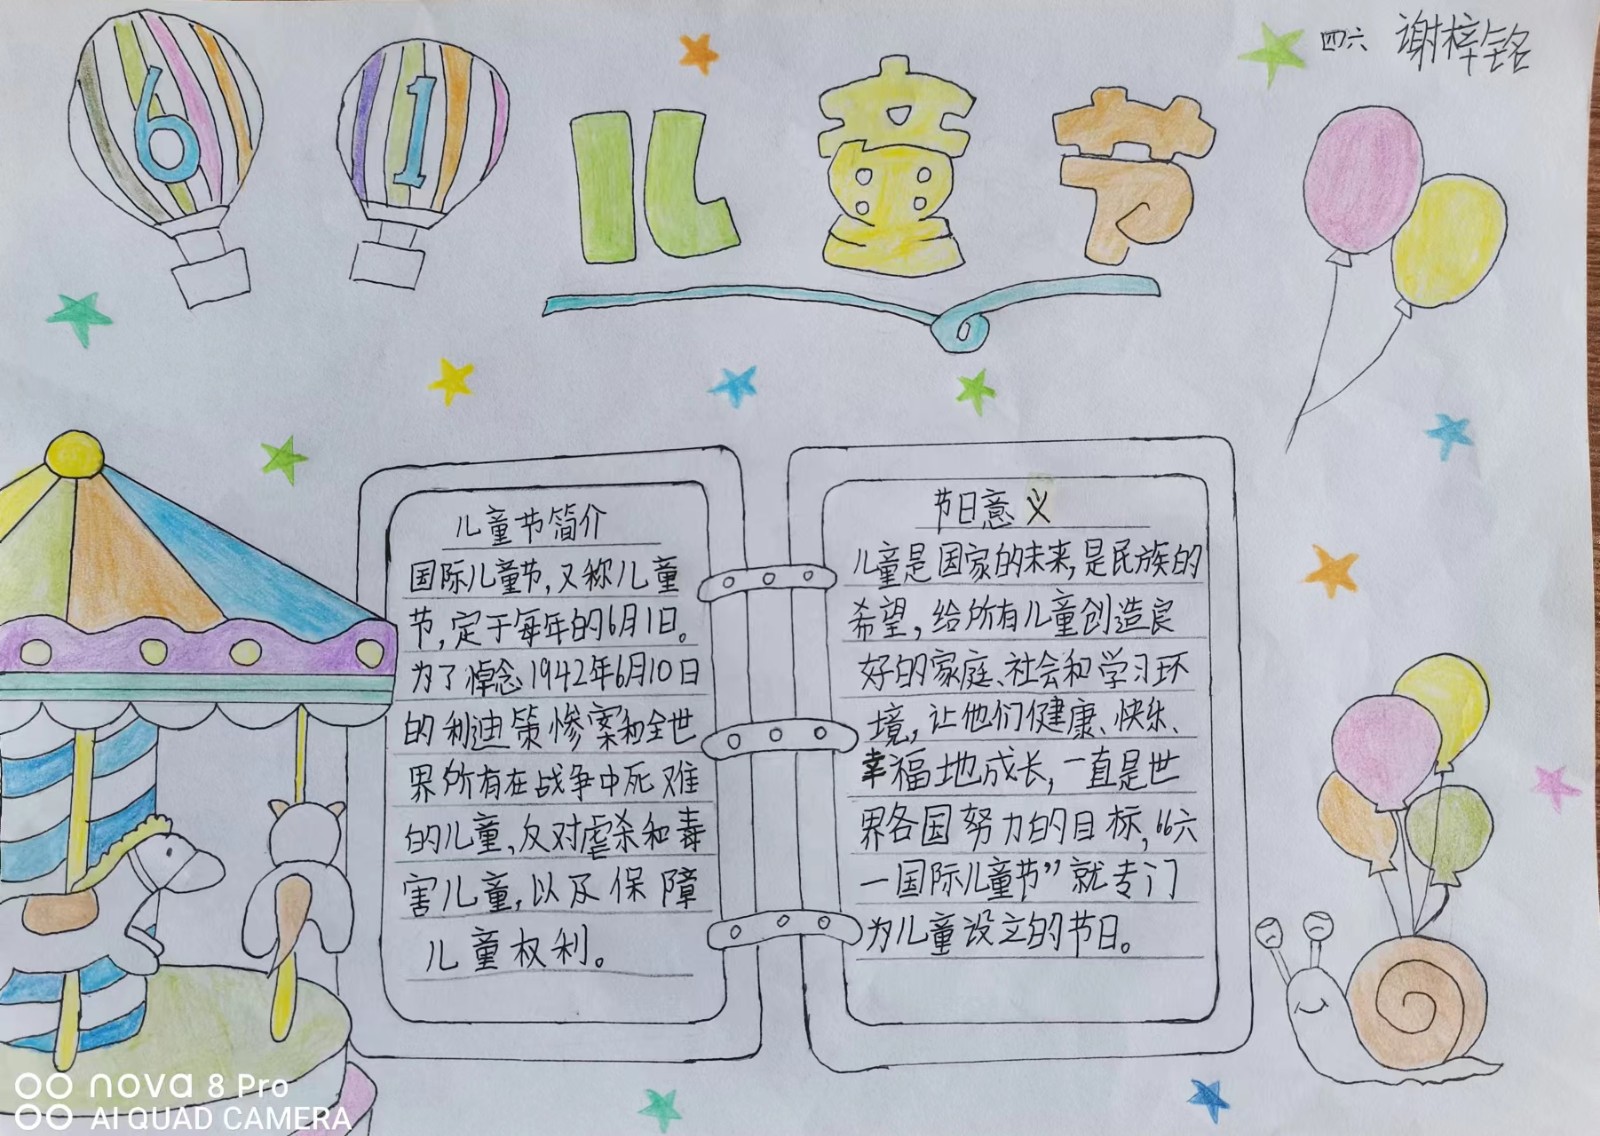 四六 谢梓铭
6 1 儿童节
儿童节简介
国际儿童节,又称儿童
节,定于每年的6月1日。
为了悼念1942年6月10日
的利迪策惨案和全世
界所有在战争中死难
的儿童,反对虐杀和毒
害儿童,以及保障
儿童权利。
节日意义
儿童是国家的未来,是民族的
希望,给所有儿童创造良
好的家庭、社会和学习环
境,让他们健康、快乐、
幸福地成长,一直是世
界各国努力的目标,“六
一国际儿童节”就专门
为儿童设立的节日。
nova 8 Pro
AI QUAD CAMERA